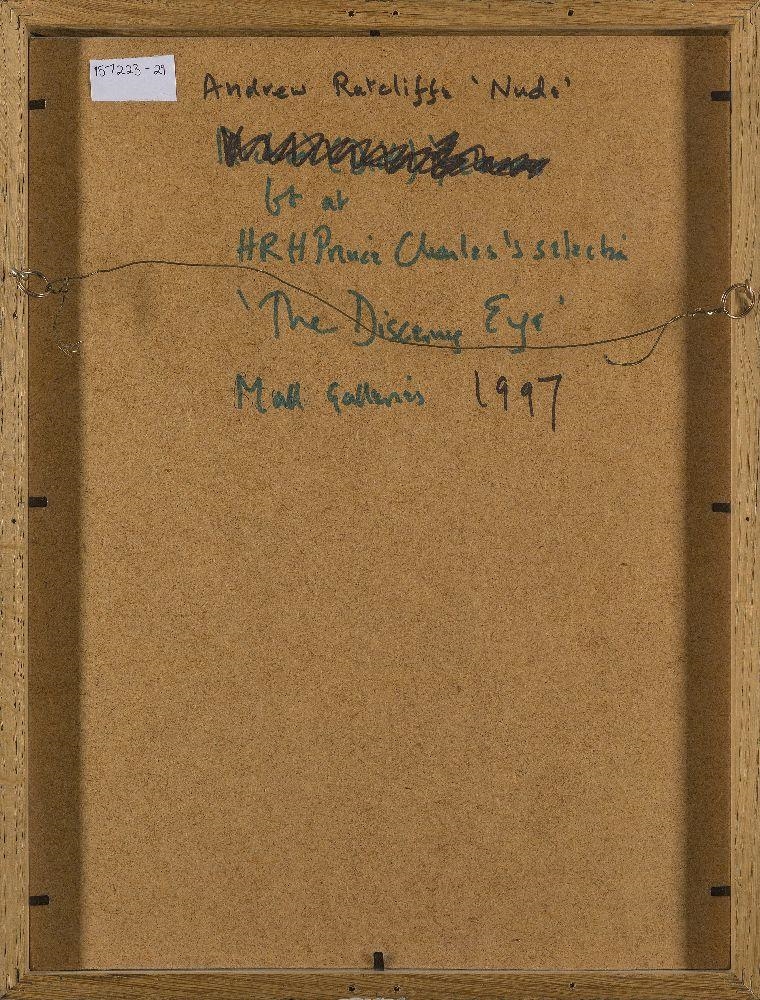 157223-29
Andrew Ratcliffe 'Nude'
bt at
HRH Prince Charles's selection
'The Discerning Eye'
Mall Galleries 1997